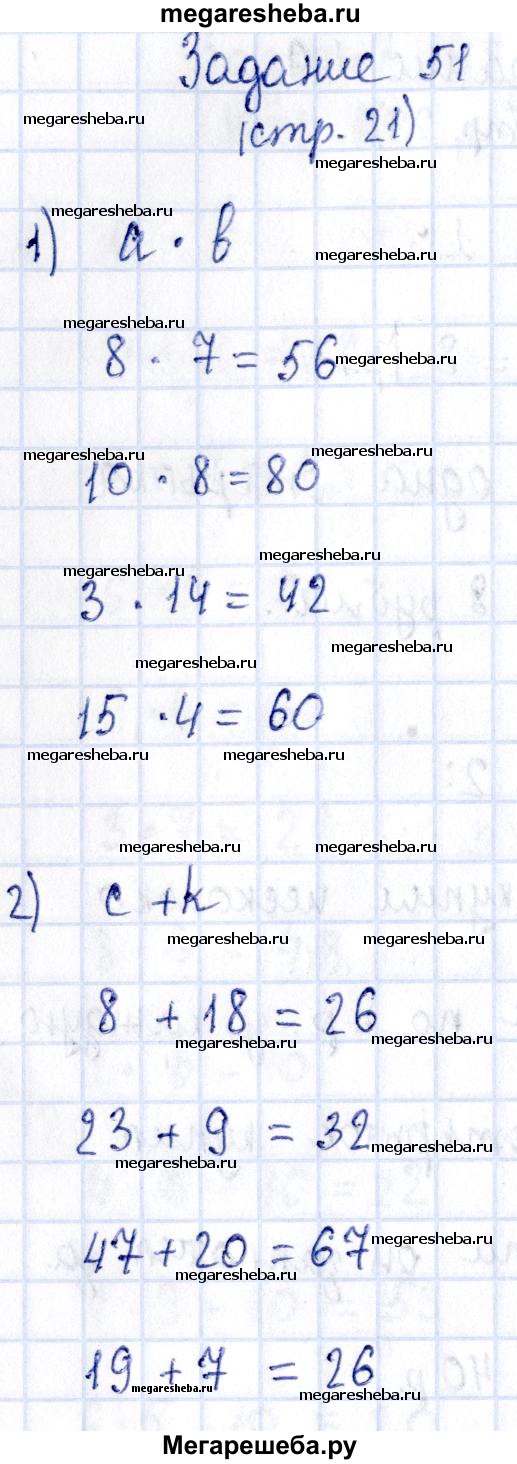 megaresheba.ru
Задание 51
megaresheba.ru
(стр. 21)
megaresheba.ru
megaresheba.ru
1) a · b
megaresheba.ru
megaresheba.ru
8 · 7 = 56
megaresheba.ru
megaresheba.ru
megaresheba.ru
10 · 8 = 80
megaresheba.ru
megaresheba.ru
3 · 14 = 42
megaresheba.ru
megaresheba.ru
15 · 4 = 60
megaresheba.ru
megaresheba.ru
megaresheba.ru
megaresheba.ru
2) c + k
megaresheba.ru
megaresheba.ru
8 + 18 = 26
megaresheba.ru
megaresheba.ru
23 + 9 = 32
megaresheba.ru
megaresheba.ru
47 + 20 = 67
megaresheba.ru
megaresheba.ru
19 + 7 = 26
megaresheba.ru
megaresheba.ru
Мегарешеба.ру